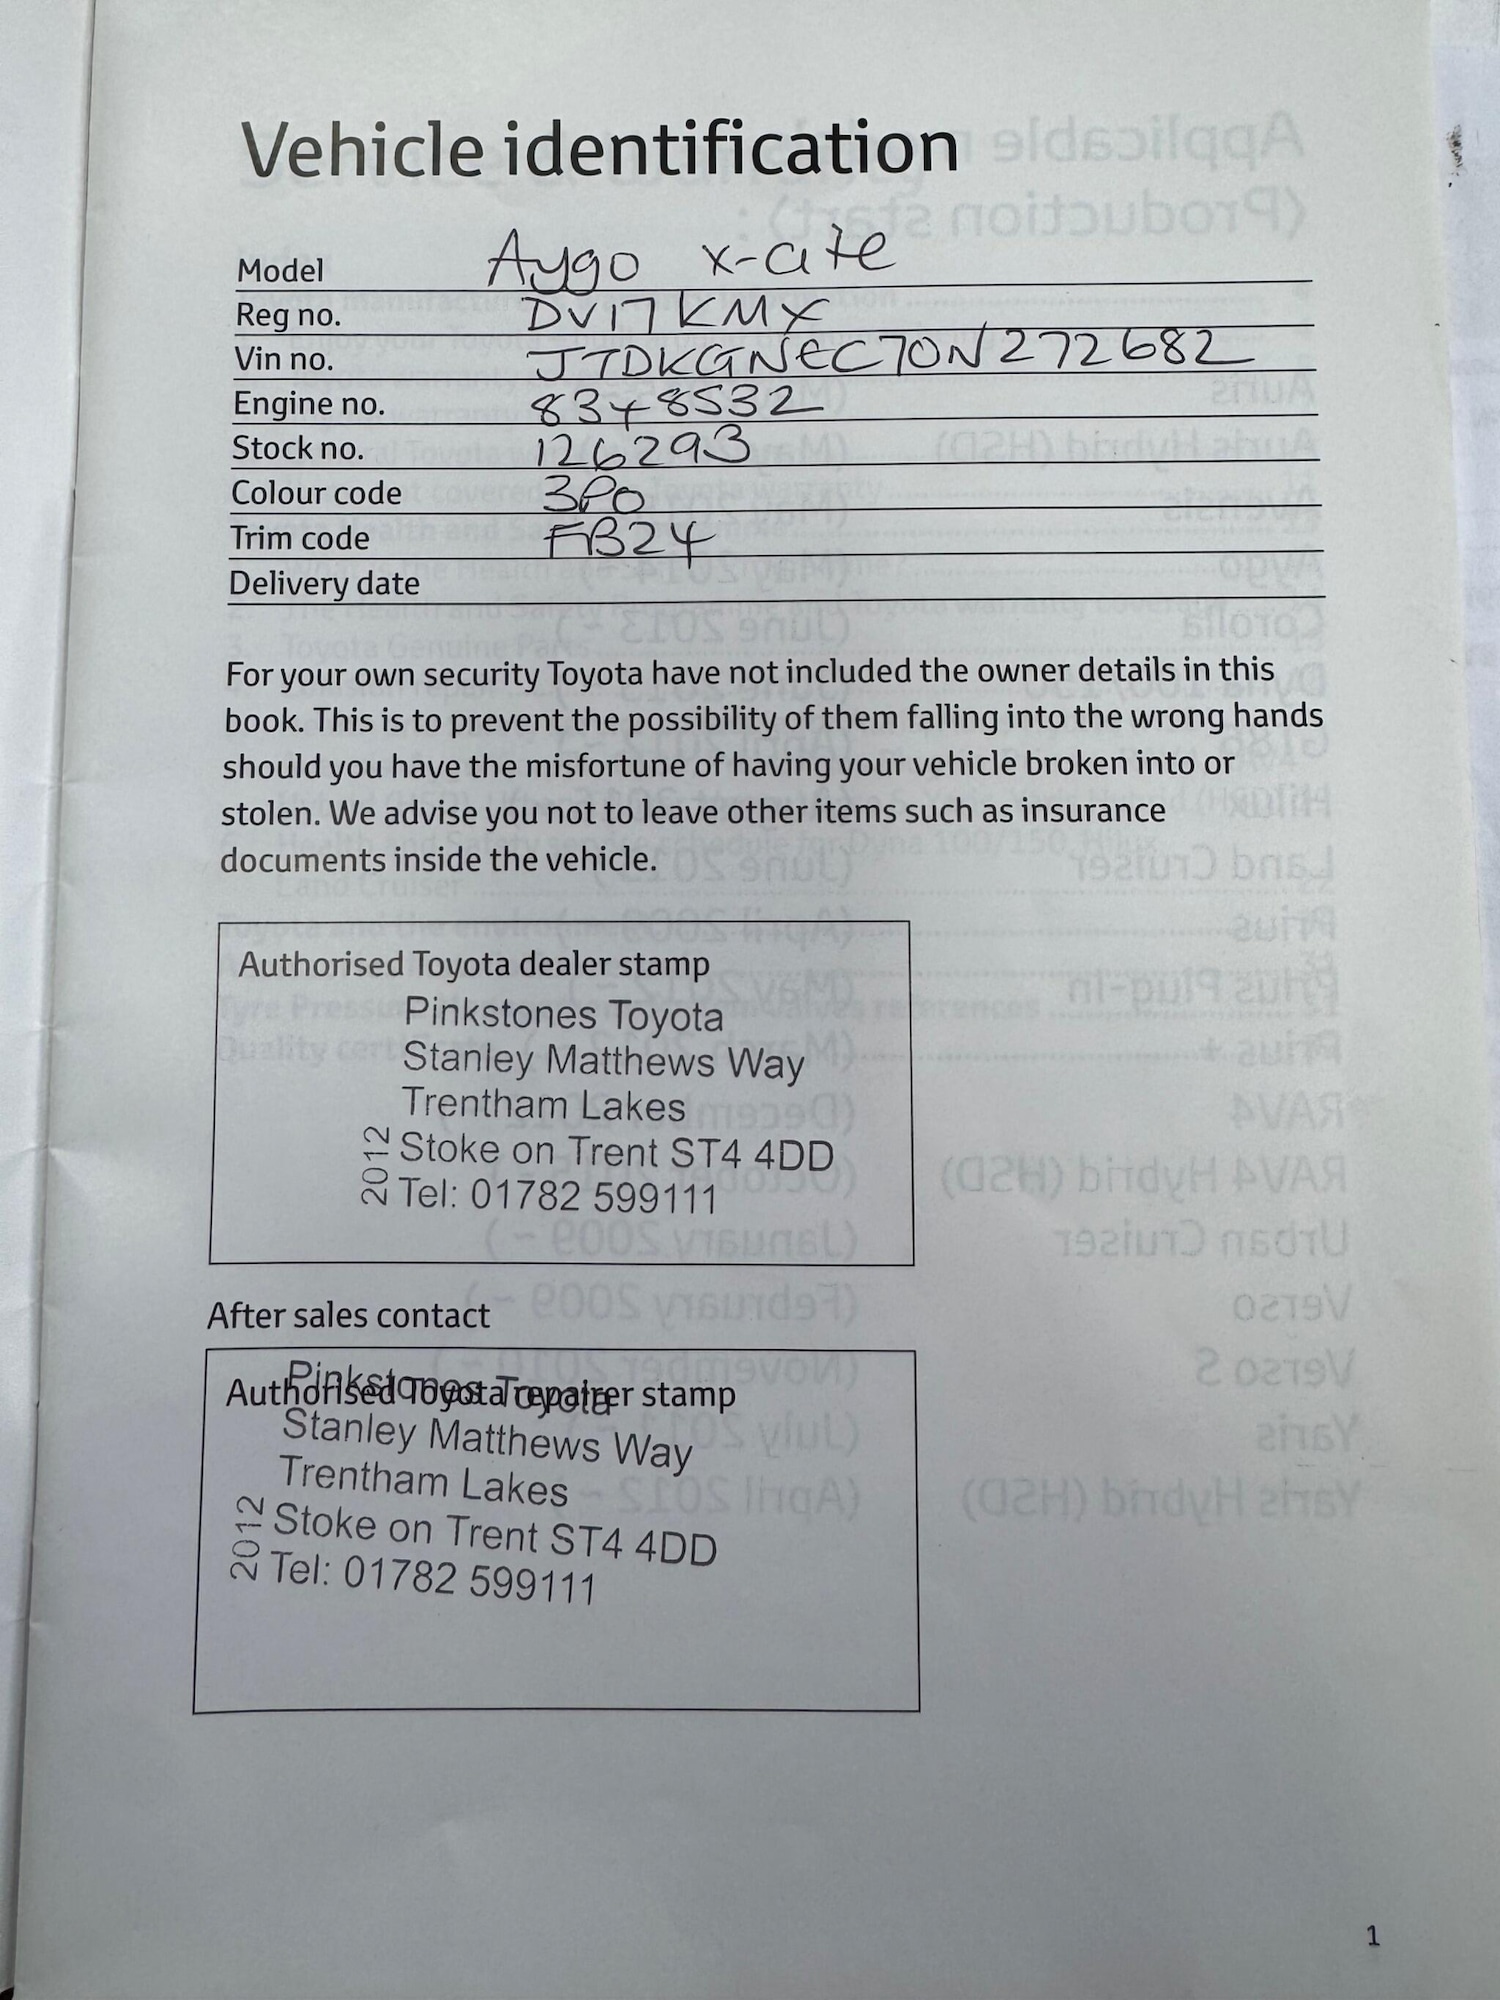 Vehicle identification
Model Aygo x-cite
Reg no. DV17 KMX
Vin no. JTDKGNEC70N272682
Engine no. 8348532
Stock no. 126293
Colour code 3P0
Trim code FB24
Delivery date
For your own security Toyota have not included the owner details in this
book. This is to prevent the possibility of them falling into the wrong hands
should you have the misfortune of having your vehicle broken into or
stolen. We advise you not to leave other items such as insurance
documents inside the vehicle.
Authorised Toyota dealer stamp
Pinkstones Toyota
Stanley Matthews Way
Trentham Lakes
Stoke on Trent ST4 4DD
Tel: 01782 599111
2012
After sales contact
Authorised Toyota repairer stamp
Pinkstones Toyota
Stanley Matthews Way
Trentham Lakes
Stoke on Trent ST4 4DD
Tel: 01782 599111
2012
1